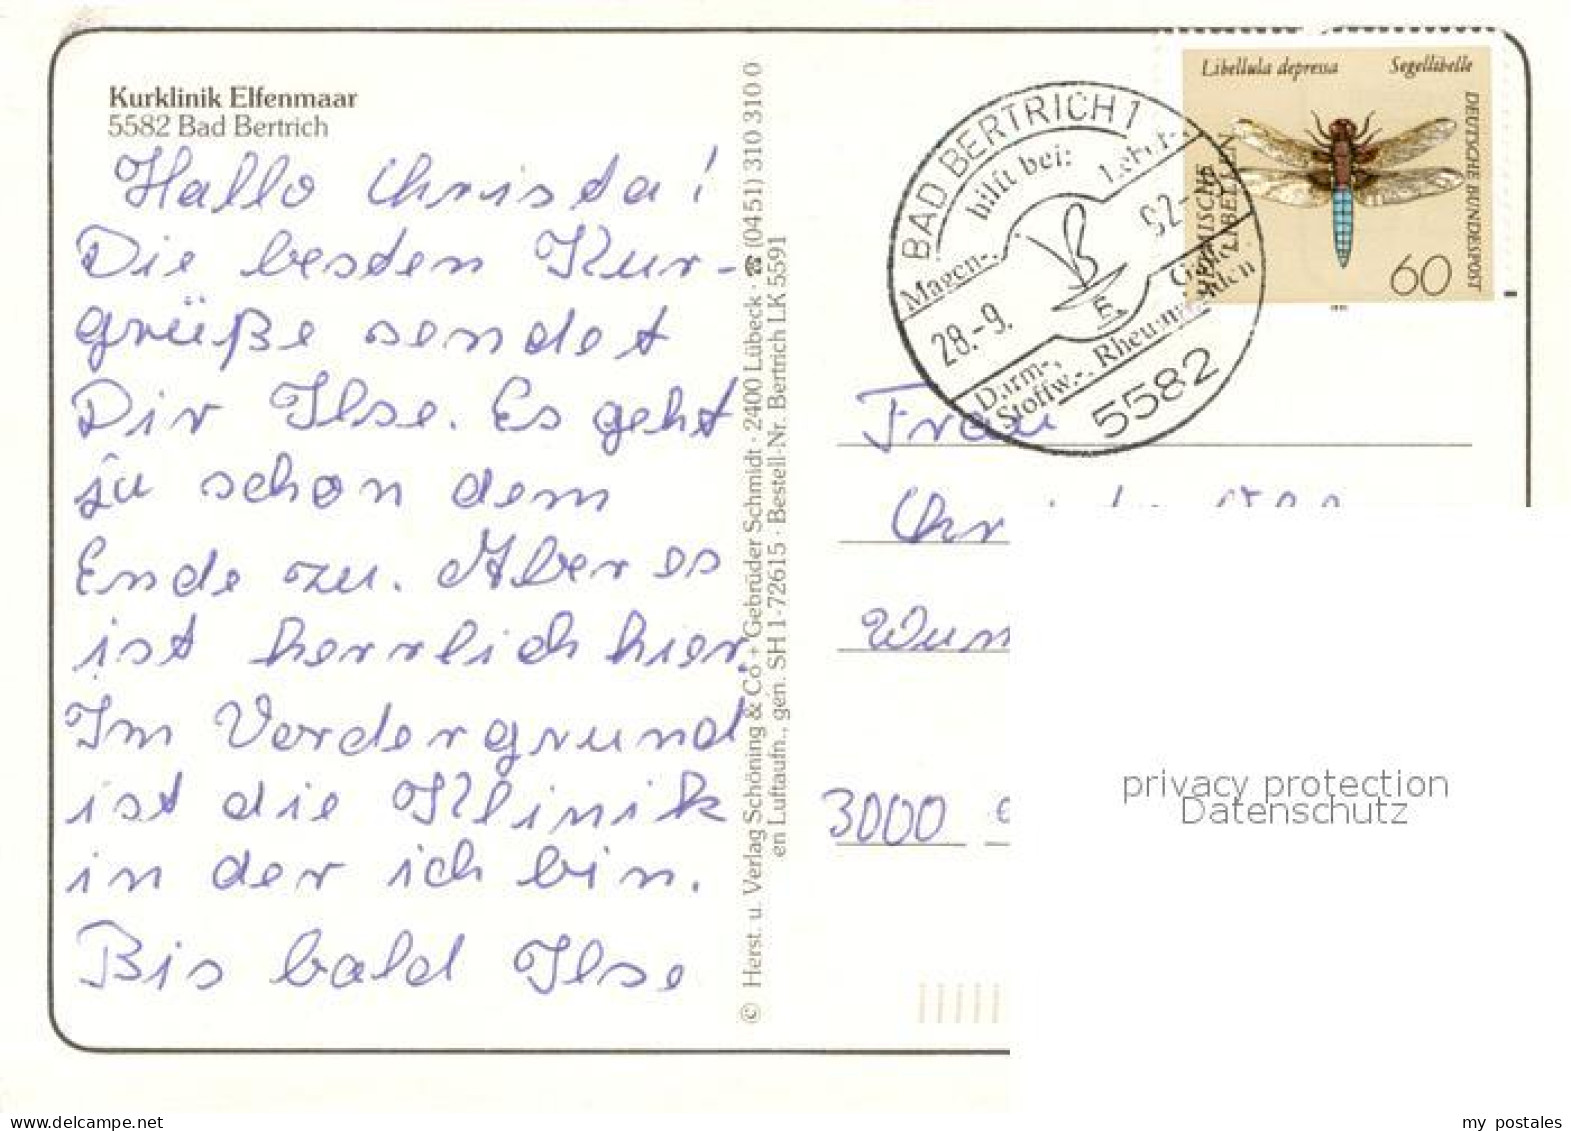 Kurklinik Elfenmaar
5582 Bad Bertrich
Hallo Christa!
Die besten Kur-
grüße sendet
Dir Ilse. Es geht
ja schon dem
Ende zu. Aber es
ist herrlich hier.
Im Vordergrund
ist die Klinik
in der ich bin.
Bis bald Ilse
© Herst. u. Verlag Schöning & Co + Gebrüder Schmidt · 2400 Lübeck · ☎ (0451) 310 310 0
en Luftaufn., gen. SH 1-72615 · Bestell-Nr. Bertrich LK 5591
BAD BERTRICH 1
hilft bei:
Magen-,
28.-9.
Darm-,
Stoffw.-,
5582
Libellula depressa Segellibelle
DEUTSCHE BUNDESPOST
LIBELLEN
60
Frau
Wun
3000
privacy protection
Datenschutz
my postales